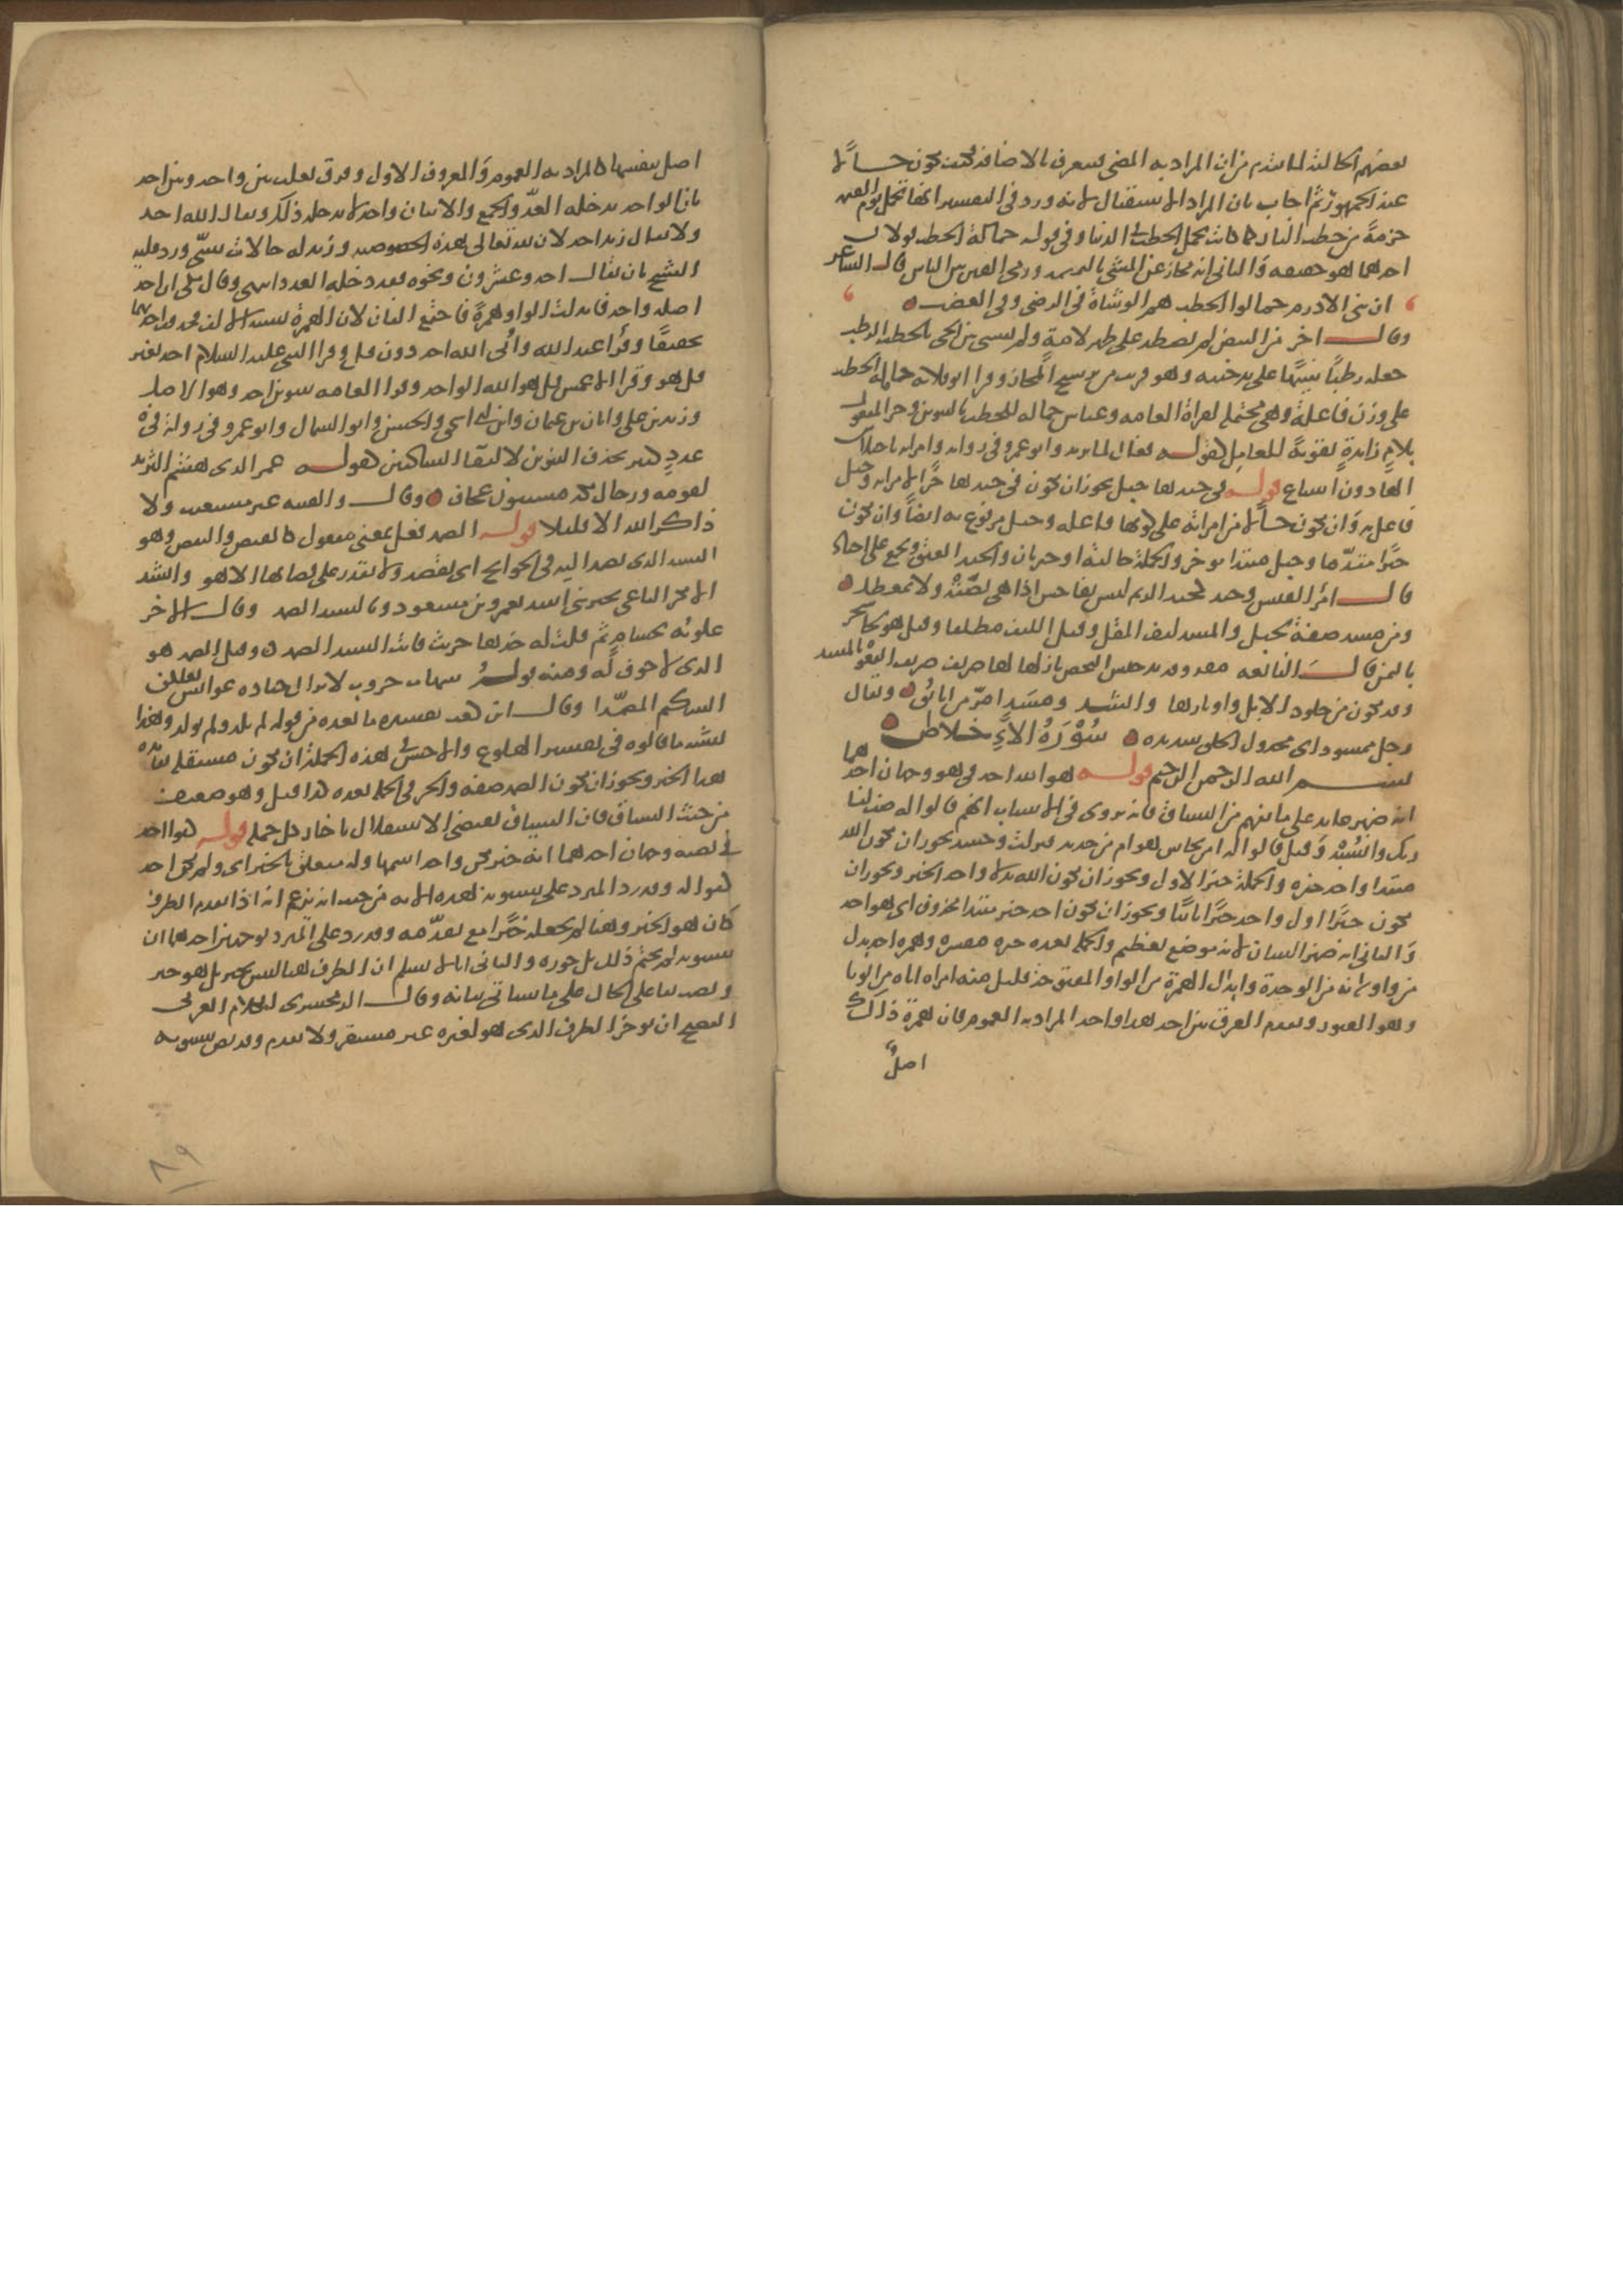 بعضهم الحالية لما تقدم من ان المراد به المضي فيتعرف بالاضافة فكيف يكون حالا
عند الجمهور ثم اجاب بان المراد الاستقبال لانه ورد في التفسير انها تحمل يوم القيمة
حزمة من حطب النار كما كانت تحمل الحطب في الدنيا وفي قوله حمالة الحطب قولان
احدهما هو حقيقة والثاني انه مجاز عن المشي بالنميمة ورمي الفتن بين الناس قال الشاعر
ان بني الادرم حمالوا الحطب هم الوشاة في الرضى وفي الغضب
وقال اخر من البيض لم تصطد على ظهر لامة ولم تمش بين الحي بالحطب الرطب
جعله رطبا تنبيها على تدخينه وهو قريب من ترشيح المجاز وقرا ابو قلابة حاملة الحطب
على وزن فاعلة وهي محتملة لقراة العامة وعباس حمالة للحطب بالتنوين وجر المفعول
بلام زايدة تقوية للعامل كقوله فعال لما يريد وابو عمرو في رواية وامراته باختلاس
الها دون اشباع قوله في جيدها حبل يجوز ان يكون في جيدها خبرا لامراته وحبل
فاعل به وان يكون حالا من امراته على كونها فاعلة وحبل مرفوع به ايضا وان يكون
خبرا مقدما وحبل مبتدا موخر والجملة حالية او خبر ثان والجيد العنق ويجمع على اجياد
قال امرؤ القيس وجيد كجيد الريم ليس بفاحش اذا هي نصته ولا بمعطل
ومن مسد صفة لحبل والمسد ليف المقل وقيل الليف مطلقا وقيل هو لحا شجر
باليمن قال النابغة مقذوفة بدخيس النحض بازلها لها صريف صريف القعو بالمسد
وقد يكون من جلود الابل واوبارها وانشد ومسد امر من ايانق ويقال
رجل ممسود اي مجدول الخلق شديده سُوْرَةُ الاِخلاص
بسم الله الرحمن الرحيم قوله هو الله احد في هو وجهان احدهما
انه ضمير عايد على ما يفهم من السياق فانه يروى في الاسباب انهم قالوا له صف لنا
ربك وانسبه وقيل قالوا له امن نحاس هو ام من حديد فنزلت وحينئذ يجوز ان يكون الله
مبتدا واحد خبره والجملة خبر الاول ويجوز ان يكون الله بدلا واحد الخبر ويجوز ان
يكون خبرا اول واحد خبرا ثانيا ويجوز ان يكون احد خبر مبتدا محذوف اي هو احد
والثاني انه ضمير الشان لانه موضع تعظيم والجملة بعده خبره مفسره وهمزة احد بدل
من واو لانه من الوحدة وابدال الهمزة من الواو المفتوحة قليل منه امراة اناة من الونا
وهو الفتور وتقدم الفرق بين احد هذا واحد المراد به العموم فان همزة ذلك
اصل
اصل بنفسها فالمراد به العموم والمعروف الاول وفرق ثعلب بين واحد وبين احد
بان الواحد يدخله العد والجمع والاثنان واحد لا يدخله ذلك ويقال الله احد
ولا يقال زيد احد لان لله تعالى هذه الخصوصية وزيد له حالات شتى ورد عليه
الشيخ بان يقال احد وعشرون ونحوه فقد دخله العدد انتهى وقال مكي ان احد
اصله واحد فابدلت الواو همزة فاجتمع الفان لان الهمزة تشبه الالف فحذفت احداهما
تخفيفا وقرا عبد الله وابي الله احد دون قل وقرا النبي عليه السلام احد بغير
قل هو وقرا الاعمش قل هو الله الواحد وقرا العامة بتنوين احد وهو الاصل
وزيد بن علي وابان بن عثمان وابن ابي اسحق والحسن وابو السمال وابو عمرو في رواية في
عدد كثير بحذف التنوين لالتقاء الساكنين كقوله عمرو الذي هشم الثريد
لقومه ورجال مكة مسنتون عجاف وقال والفيته غير مستعتب ولا
ذاكر الله الا قليلا قوله الصمد فعل بمعنى مفعول كالقبض والنقض وهو
السيد الذي يصمد اليه في الحوايج اي يقصد ولا يقدر على قضايها الا هو وانشد
الا بكر الناعي بخيري بني اسد بعمرو بن مسعود وبالسيد الصمد وقال الاخر
علوته بحسام ثم قلت له خذها حريث فانت السيد الصمد وقيل الصمد هو
الذي لا جوف له ومنه قوله شهاب حروب لا تزال جياده عوابس يعلكن
الشكيم المصمدا وقال ابن كعب تفسيره ما بعده من قوله لم يلد ولم يولد وهذا
يشبه ما قالوه في تفسير الهلوع والاحسن في هذه الجملة ان تكون مستقلة بفايدة
هذا الخبر ويجوز ان يكون الصمد صفة والخبر في الجملة بعده كذا قيل وهو ضعيف
من حيث السياق فان السياق يقتضي الاستقلال باخبار كل جملة قوله كفوا احد
في نصبه وجهان احدهما انه خبر يكن واحد اسمها وله متعلق بالخبر اي ولم يكن احد
كفوا له وقد رد المبرد على سيبويه بهذه الاية من حيث انه يزعم انه اذا تقدم الظرف
كان هو الخبر وهنا لم يجعله خبرا مع تقدمه وقد رد على المبرد بوجهين احدهما ان
سيبويه لم يحتم ذلك بل جوزه والثاني انا لا نسلم ان الظرف هنا ليس بخبر بل هو خبر
ونصب كفوا على الحال على ما سياتي بيانه وقال الزمخشري الكلام العربي
الفصيح ان يوخر الظرف الذي هو لغو غير مستقر ولا يقدم وقد نص سيبويه
٨٩